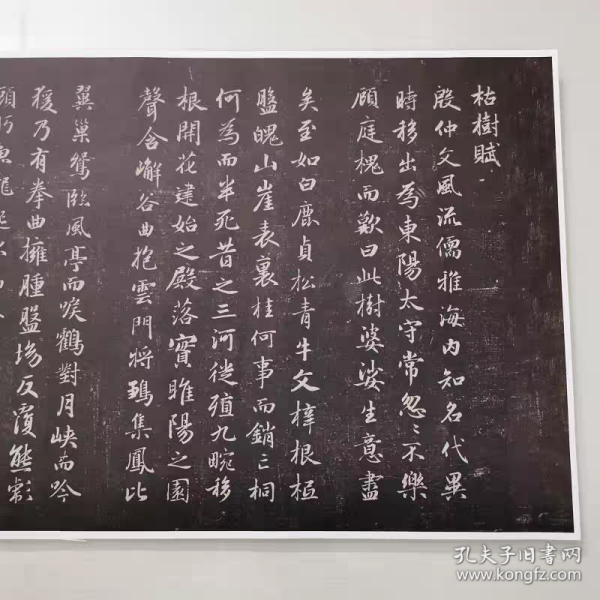 枯樹賦
殷仲文風流儒雅海內知名代異
時移出為東陽太守常忽〻不樂
顧庭槐而歎曰此樹婆娑生意盡
矣至如白鹿貞松青牛文梓根柢
盤魄山崖表裏桂何事而銷亡桐
何為而半死昔之三河徙殖九畹移
根開花建始之殿落實睢陽之園
聲含嶰谷曲抱雲門將鶵集鳳比
翼巢鴛臨風亭而唳鶴對月峽而吟
猨乃有拳曲擁腫盤坳反覆熊彪
孔夫子旧書网
www.kongfz.com